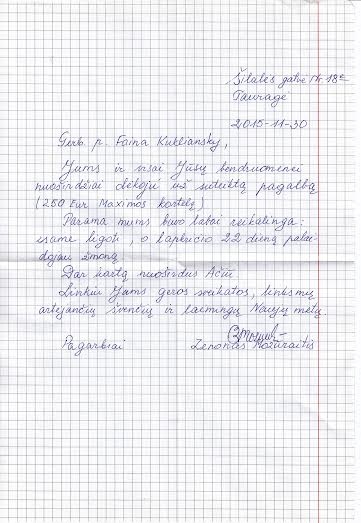 Šilalės gatvė Nr. 18ᵃ
Tauragė
2015-11-30
Gerb. p. Faina Kukliansky,
Jums ir visai Jūsų bendruomenei
nuoširdžiai dėkoju už suteiktą pagalbą
(250 Eur Maximos kortelę)
Parama mums buvo labai reikalinga:
esame ligoti, o lapkričio 22 dieną palai-
dojau žmoną
Dar kartą nuoširdus Ačiū
Linkiu Jums geros sveikatos, linksmų
artėjančių švenčių ir laimingų Naujų metų.
Pagarbiai Zenonas Možūraitis